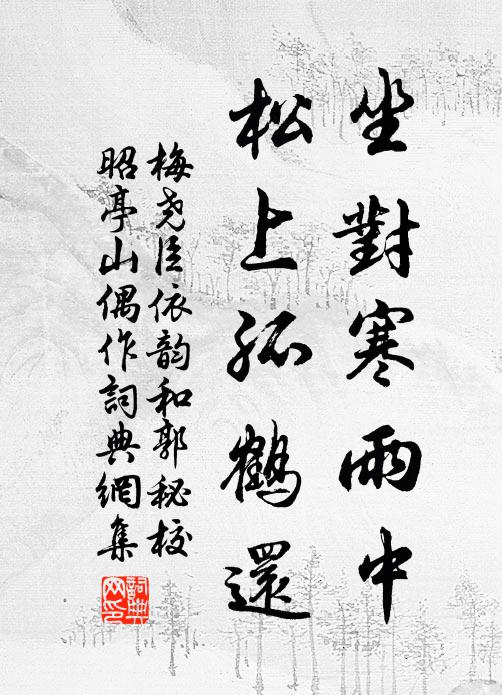 坐對寒雨中
松上孤鶴還
梅尧臣依韵和郭秘校
昭亭山偶作詞典網集